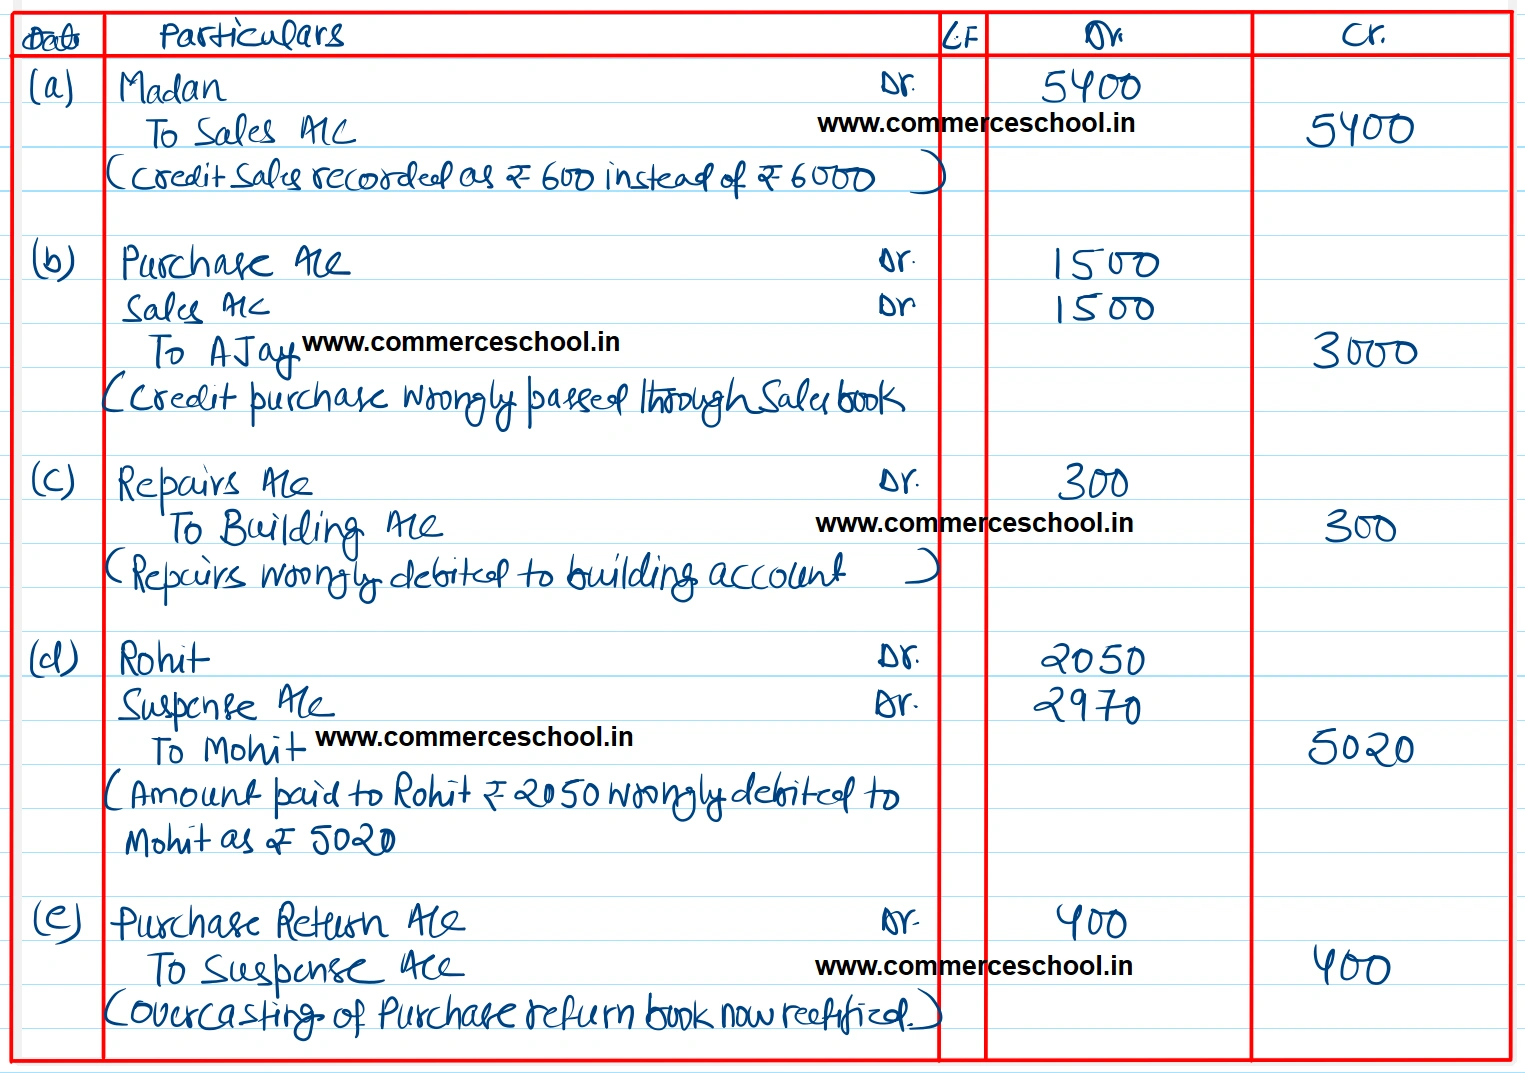 Date Particulars L.F Dr. Cr.
(a) Madan Dr. 5400
www.commerceschool.in
To Sales A/C 5400
(Credit Sales recorded as ₹ 600 instead of ₹ 6000)
(b) Purchase A/c Dr. 1500
Sales A/C Dr 1500
To AJay www.commerceschool.in 3000
(Credit purchase wrongly passed through Sales book
(C) Repairs A/c Dr. 300
To Building A/c www.commerceschool.in 300
(Repairs wrongly debited to building account)
(d) Rohit Dr. 2050
Suspense A/c Dr. 2970
To Mohit www.commerceschool.in 5020
(Amount paid to Rohit ₹ 2050 wrongly debited to
Mohit as ₹ 5020
(e) Purchase Return A/c Dr. 400
To Suspense A/c www.commerceschool.in 400
(Overcasting of Purchase return book now rectified.)